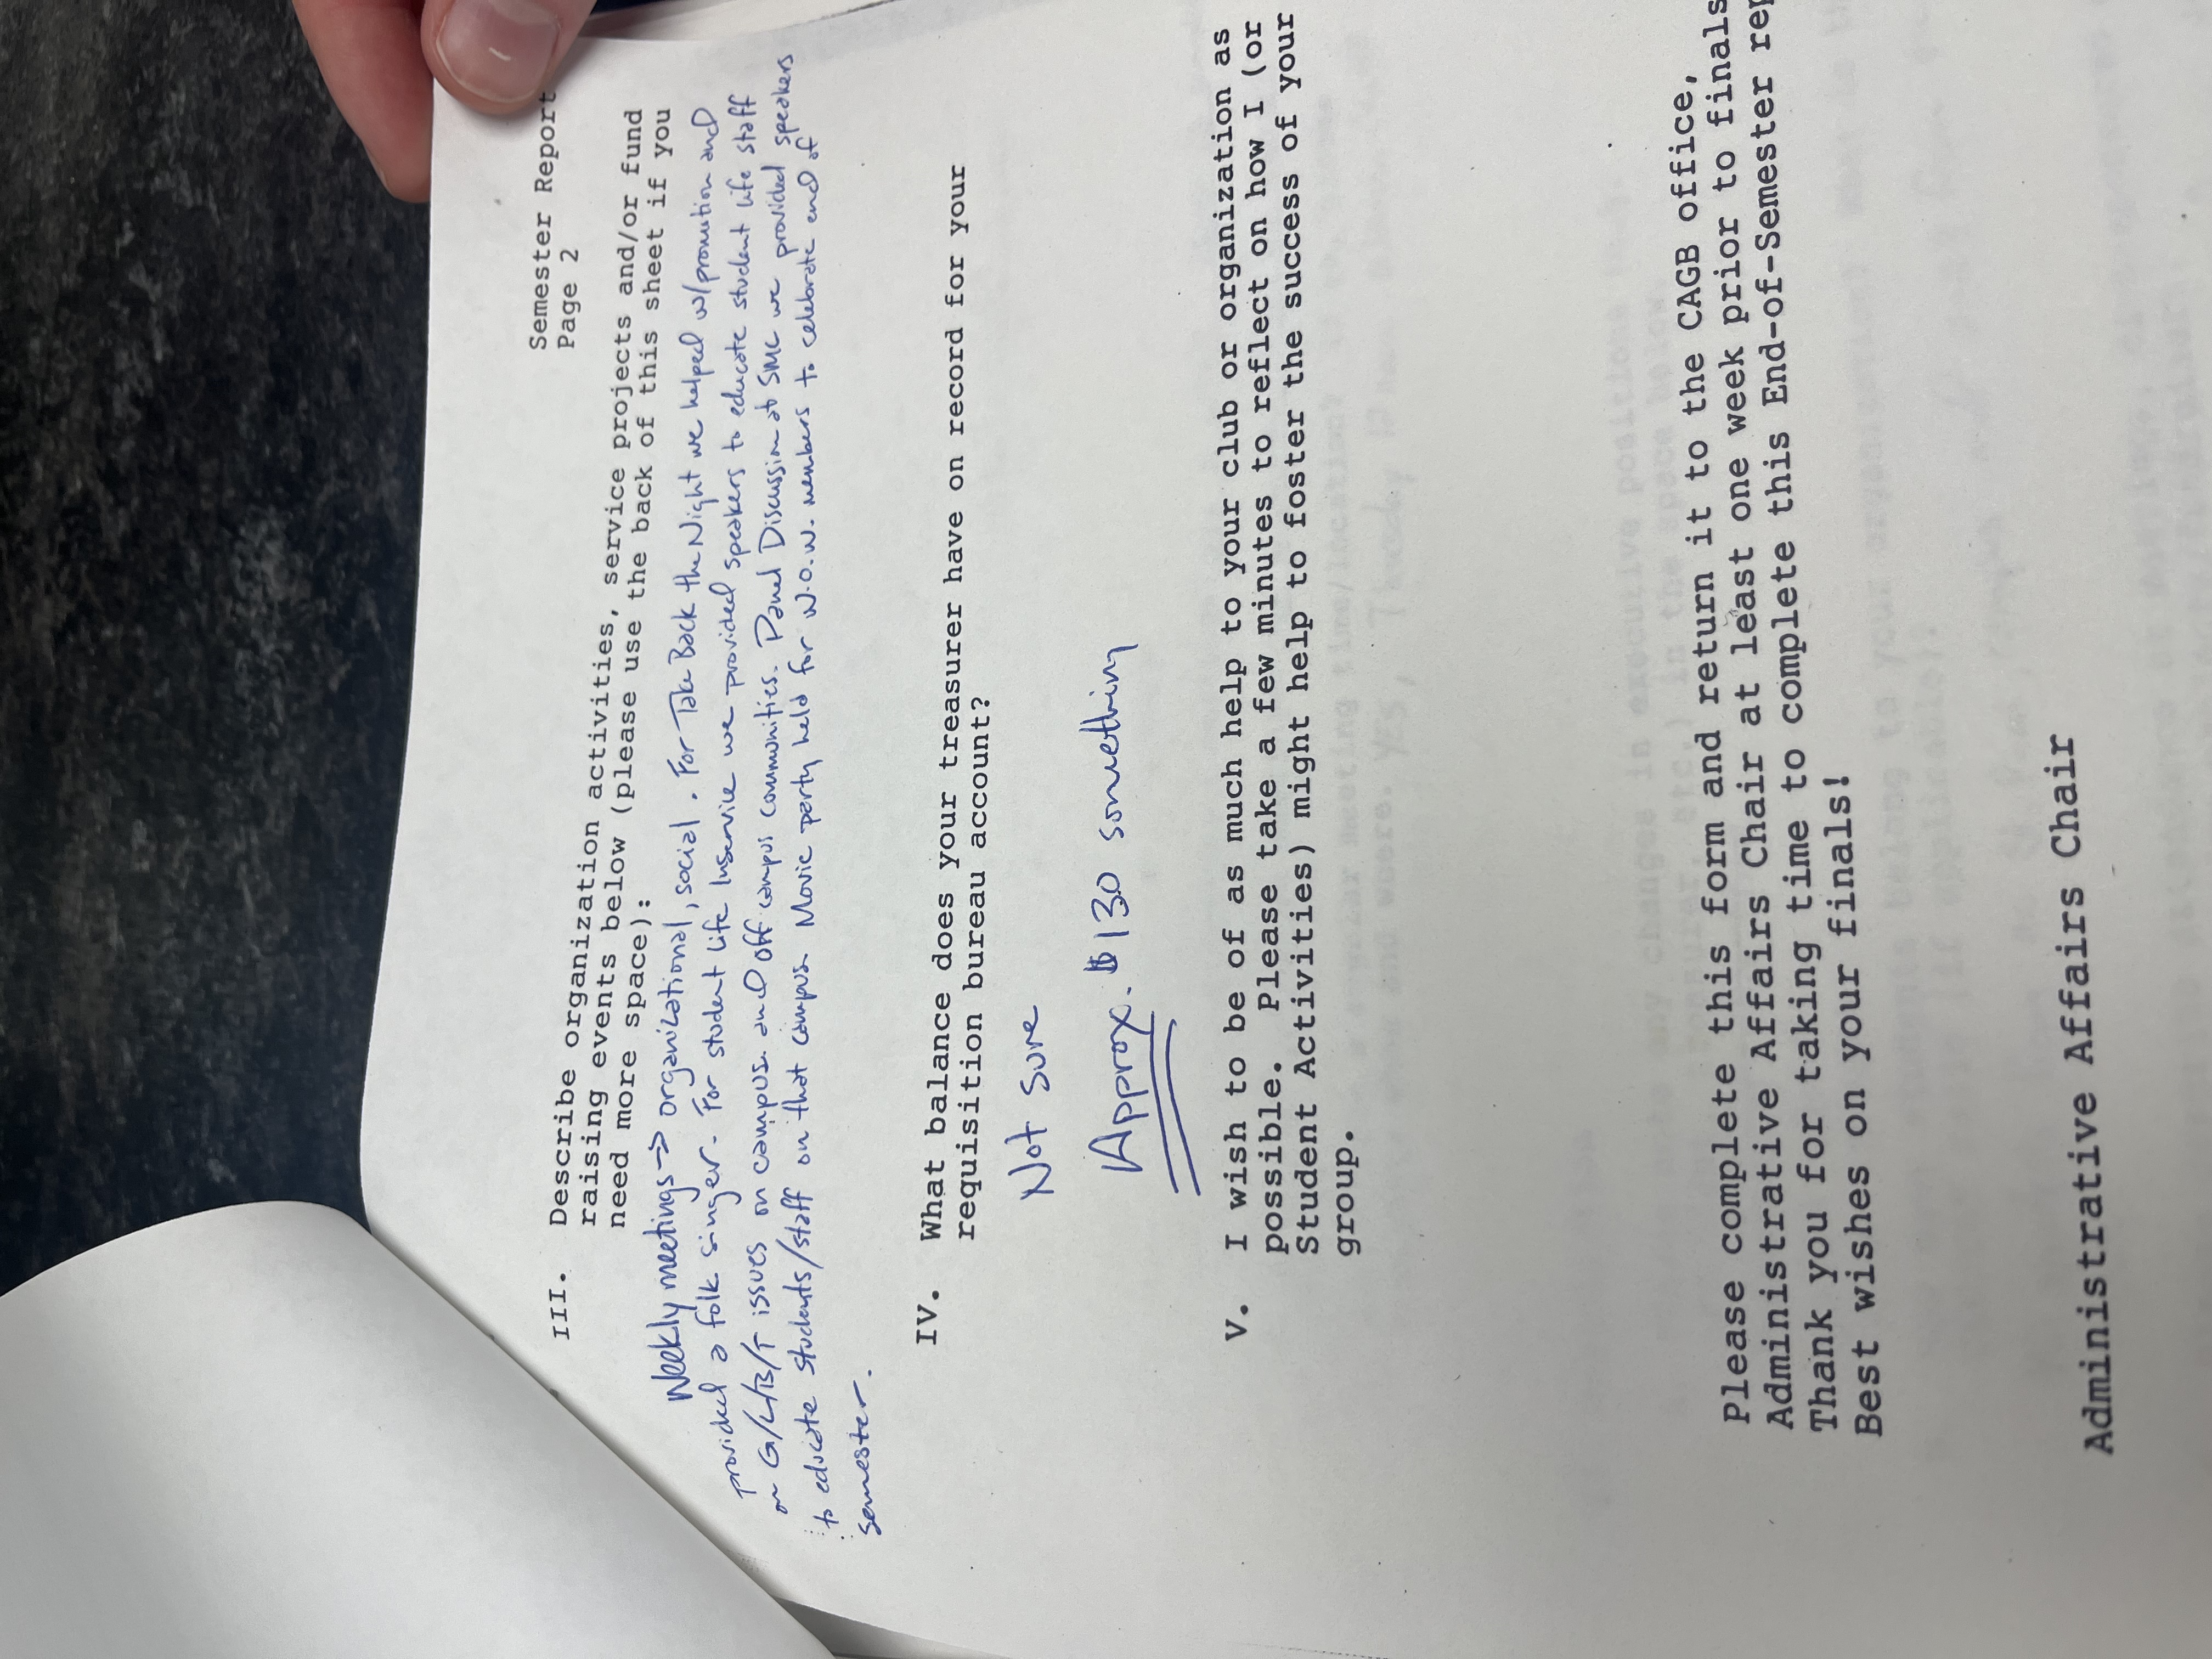 Semester Report
Page 2
III. Describe organization activities, service projects and/or fund
raising events below (please use the back of this sheet if you
need more space):
Weekly meetings → organizational, social. For Take Back the Night we helped w/promotion and
provided a folk singer. For student life Inservice we provided speakers to educate student life staff
on G/L/B/T issues on campus and off campus communities. Panel Discussion at SMC we provided speakers
to educate students/staff on that campus. Movie party held for W.O.W. members to celebrate end of
semester.
IV. What balance does your treasurer have on record for your
requisition bureau account?
Not sure
Approx. $130 something
V. I wish to be of as much help to your club or organization as
possible. Please take a few minutes to reflect on how I (or
Student Activities) might help to foster the success of your
group.
Please complete this form and return it to the CAGB office,
Administrative Affairs Chair at least one week prior to finals
Thank you for taking time to complete this End-of-Semester rep
Best wishes on your finals!
Administrative Affairs Chair